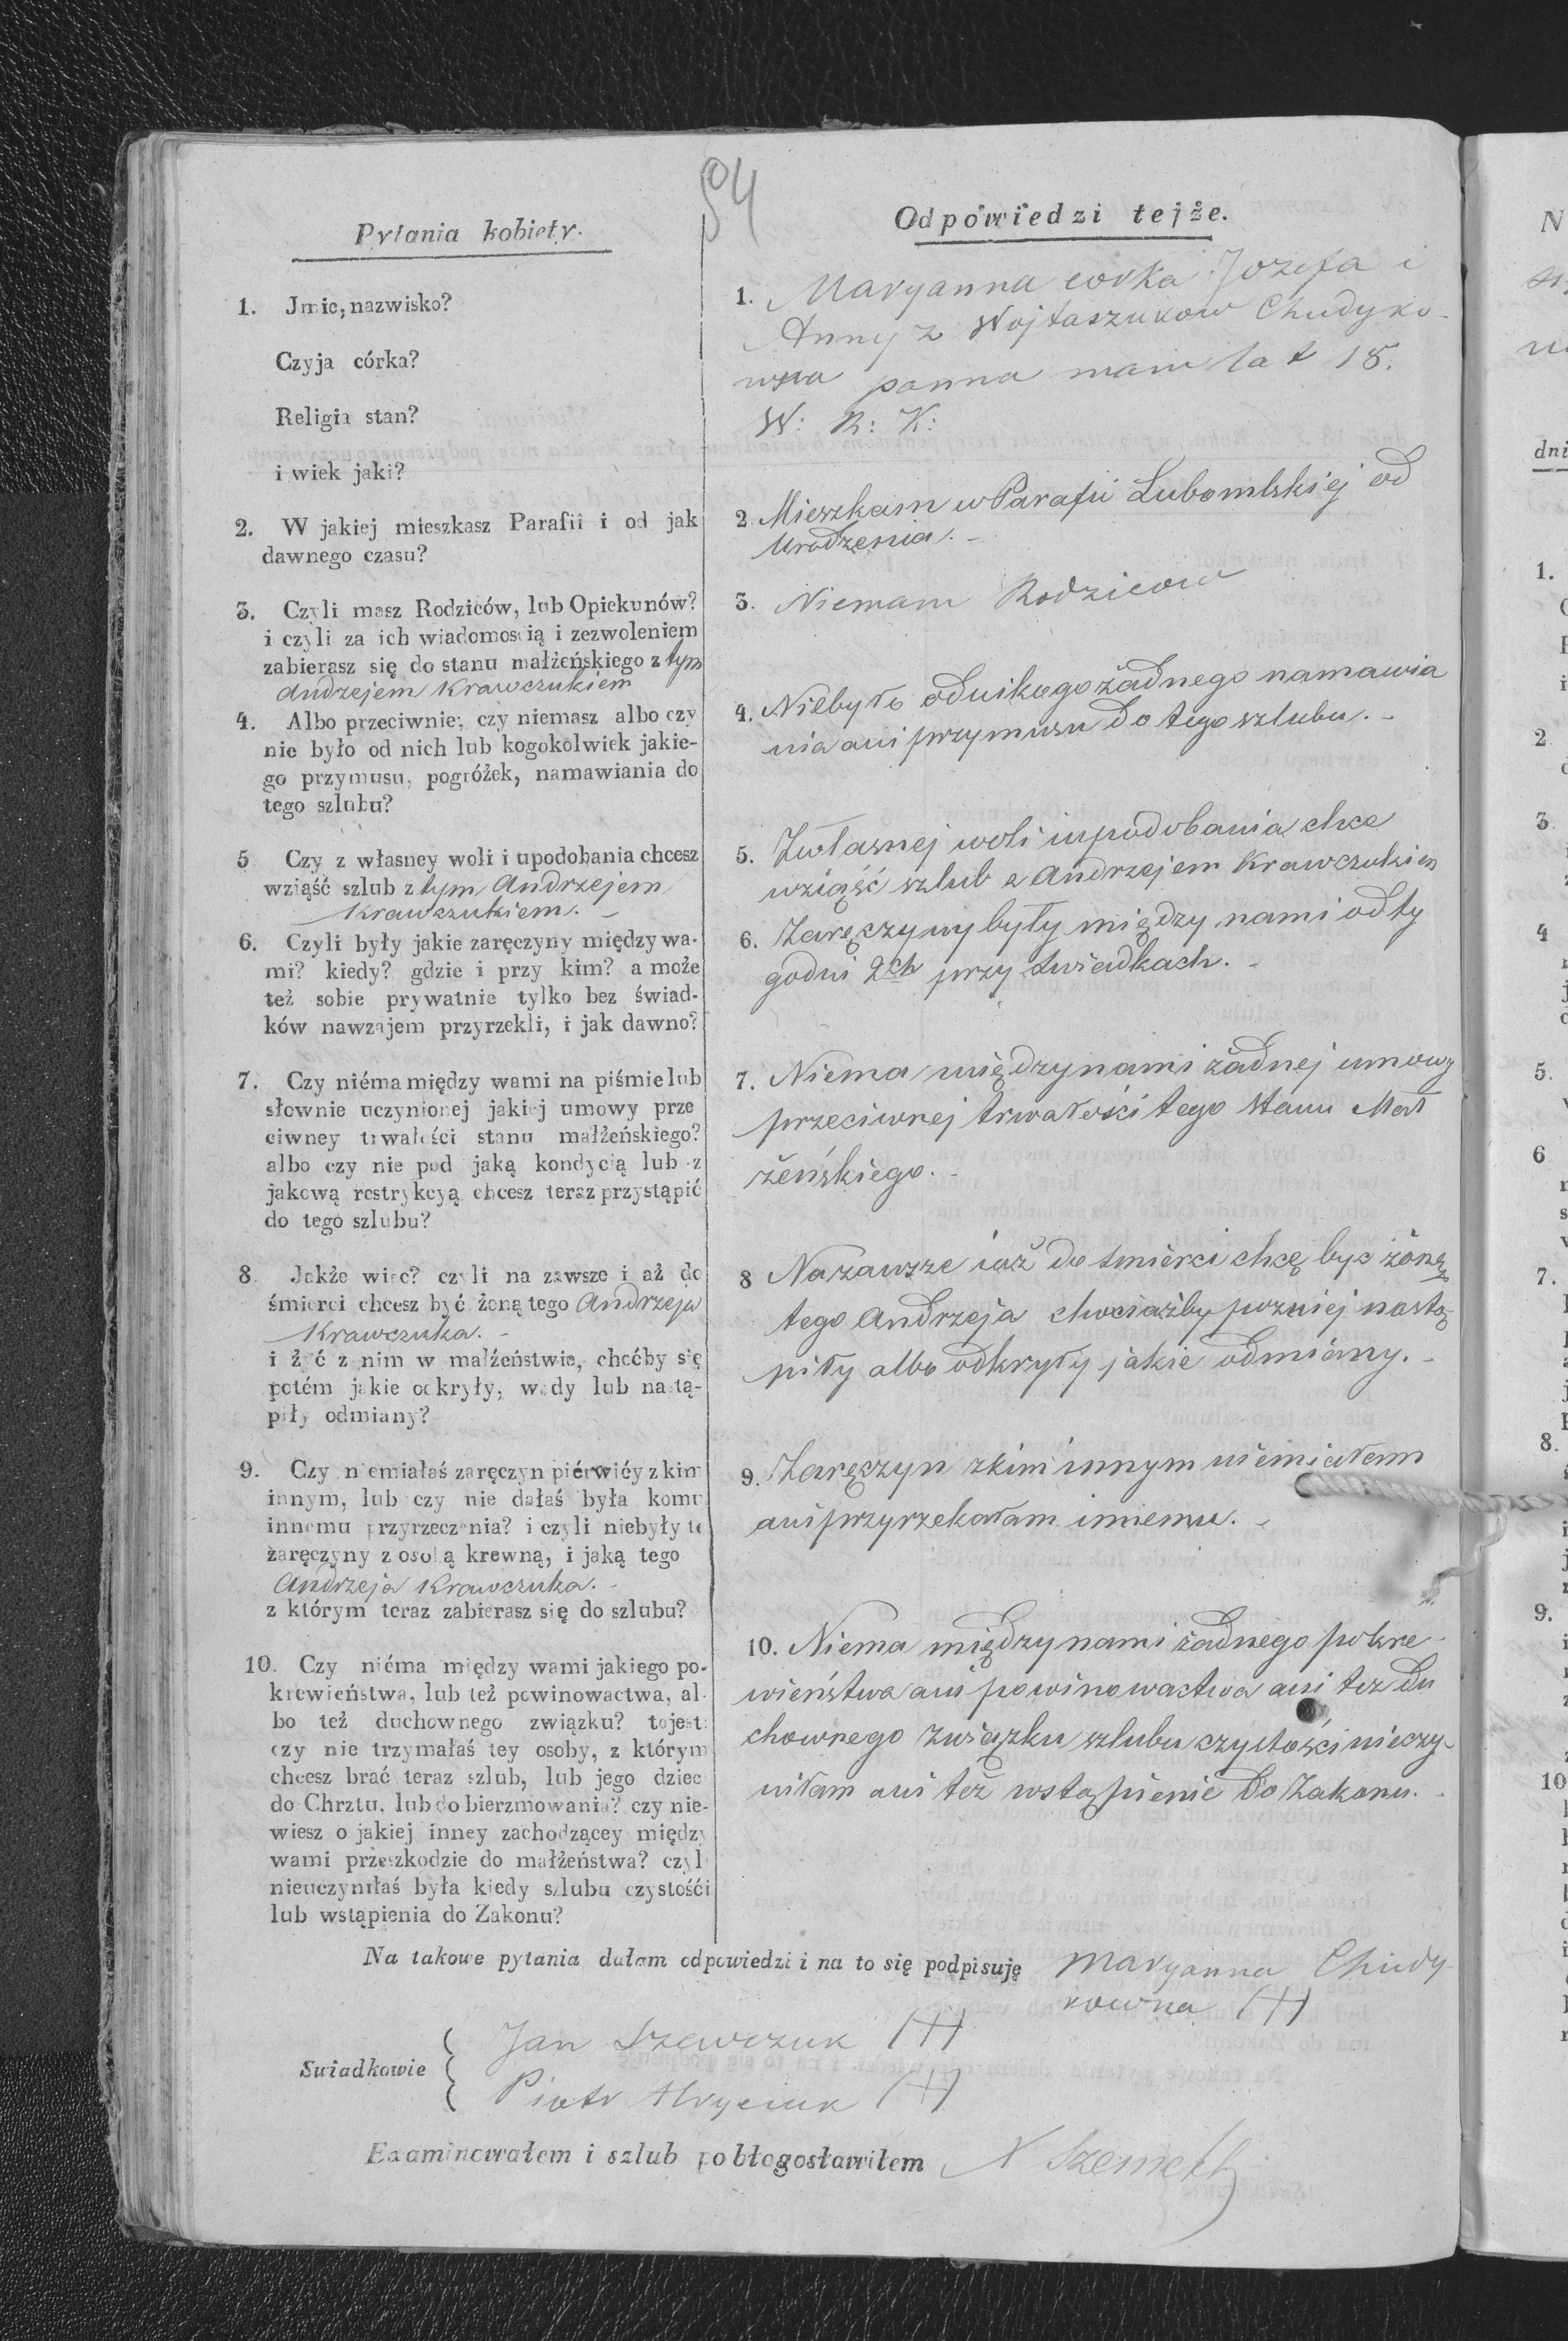 94
Pytania kobiety.
1. Jmie, nazwisko?
Czyja córka?
Religia stan?
i wiek jaki?
2. W jakiej mieszkasz Parafii i od jak
dawnego czasu?
3. Czyli masz Rodziców, lub Opiekunów?
i czyli za ich wiadomością i zezwoleniem
zabierasz się do stanu małżeńskiego z tym
Andrzejem Krawczukiem
4. Albo przeciwnie; czy niemasz albo czy
nie było od nich lub kogokolwiek jakie-
go przymusu, pogróżek, namawiania do
tego szlubu?
5 Czy z własney woli i upodobania chcesz
wziąść szlub z tym Andrzejem
Krawczukiem. -
6. Czyli były jakie zaręczyny między wa-
mi? kiedy? gdzie i przy kim? a może
też sobie prywatnie tylko bez świad-
ków nawzajem przyrzekli, i jak dawno?
7. Czy niéma między wami na piśmie lub
słownie uczynionej jakiej umowy prze
ciwney trwałości stanu małżeńskiego?
albo czy nie pod jaką kondycią lub z
jakową restrykcyą chcesz teraz przystąpić
do tego szlubu?
8. Jakże więc? czyli na zawsze i aż do
śmierci chcesz być żoną tego Andrzeja
Krawczuka. -
i żyć z nim w małżeństwie, choćby się
potém jakie odkryły, wady lub nastą-
piły odmiany?
9. Czy niemiałaś zaręczyn piérwiéy z kim
innym, lub czy nie dałaś była komu
innemu przyrzeczenia? i czyli niebyły te
zaręczyny z osobą krewną, i jaką tego
Andrzeja Krawczuka. -
z którym teraz zabierasz się do szlubu?
10. Czy niéma między wami jakiego po-
krewieństwa, lub też powinowactwa, al-
bo też duchownego związku? tojest:
czy nie trzymałaś tey osoby, z którym
chcesz brać teraz szlub, lub jego dzieci
do Chrztu, lub do bierzmowania? czy nie-
wiesz o jakiej inney zachodzącey między
wami przeszkodzie do małżeństwa? czyli
nieuczyniłaś była kiedy szlubu czystośći
lub wstąpienia do Zakonu?
Odpowiedzi tejże.
1. Maryanna corka Jozefa i
Anny z Wojtaszukow Chudyko-
wna panna mam lat 18.
W: R: K:
2 Mieszkam w Parafii Lubomlskiej od
Urodzenia. -
3. Niemam Rodzicow
4. Niebyło odnikogo żadnego namawia
nia ani przymusu do tego szlubu. -
5. Zwłasnej woli iupodobania chce
wziąść szlub z Andrzejem Krawczukiem
6. Zaręczyny były między nami odty
godni 2ch przy świadkach. -
7. Niema międzynami żadnej umowy
przeciwnej trwałości tego stanu Mał
żeńskiego. -
8 Nazawsze iaż do śmierci chcę byc żoną
tego Andrzeja chociażby pozniej nastą
piły albo odkryły jakie odmiany. -
9. Zaręczyn zkim innym niemiałam
ani przyrzekałam innemu. -
10. Niema międzynami żadnego pokre-
wieństwa ani powinowactwa ani tez du
chownego związku szlubu czystości nieczy-
niłam ani też wstąpienie do Zakonu. -
Na takowe pytania dałam odpowiedzi i na to się podpisuję Maryanna Chudy-
kowna (+)
Swiadkowie
Jan Szewczuk (+)
Piotr Hryciuk (+)
Examinowałem i szlub pobłogosławiłem X Szemeth
N
dni
1.
2
3
4
5.
6
7.
8.
9.
10